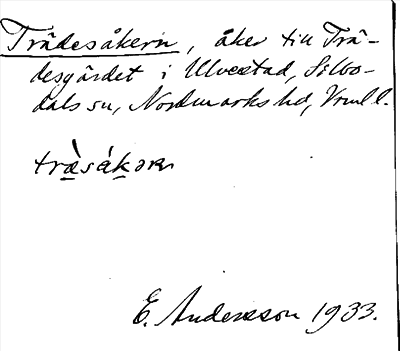 Trädesåkern, åker till Trä-
desgärdet i Ulvestad, Silbo-
dals sn, Nordmarks hd, Vrml l.
tràsåkorn
E. Andersson 1933.